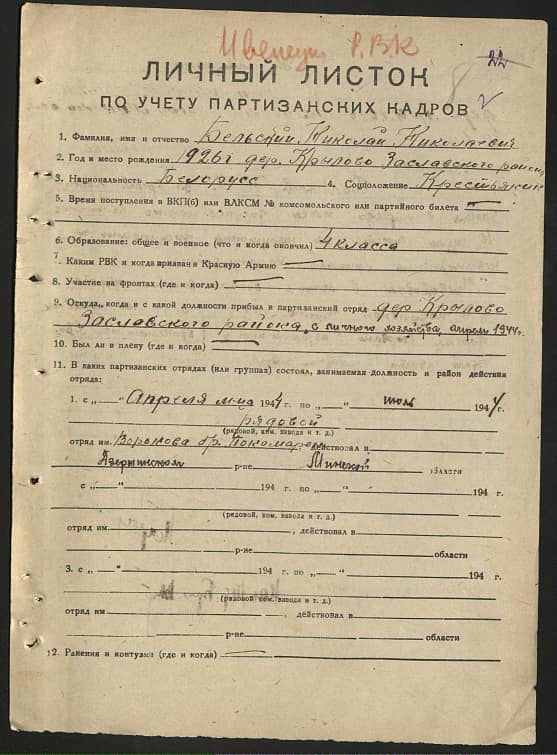 Р. ВК
22
ЛИЧНЫЙ ЛИСТОК
ПО УЧЕТУ ПАРТИЗАНСКИХ КАДРОВ
1. Фамилия, имя и отчество Бельский Николай Николаевич
2. Год и место рождения 1926г дер. Крылово Заславского района
3. Национальность Белорусс 4. Соцположение Крестьянин
5. Время поступления в ВКП(б) или ВЛКСМ № комсомольского или партийного билета —
6. Образование: общее и военное (что и когда окончил) 4 класса
7. Каким РВК и когда призван в Красную Армию —
8. Участие на фронтах (где и когда) —
9. Откуда, когда и с какой должности прибыл в партизанский отряд дер. Крылово
Заславского района, с личного хозяйства, апрель 1944г.
10. Был ли в плену (где и когда) —
11. В каких партизанских отрядах (или группах) состоял, занимаемая должность и район действия
отряда:
1. с „ “ Апреля м-ца 1944 г. по „ “ июль 1944 г.
рядовой
(рядовой, ком. взвода и т. д.)
отряд им. бр. действовал в
Дзержинском р-не Минской области
с „—“ 194 г. по „—“ 194 г.
(рядовой, ком. взвода и т. д.)
отряд им. , действовал в
р-не области
3. с „—“ 194 г. по „—“ 194 г.
(рядовой, ком. взвода и т. д.)
отряд им , действовал в
р-не области
12. Ранения и контузии (где и когда) —